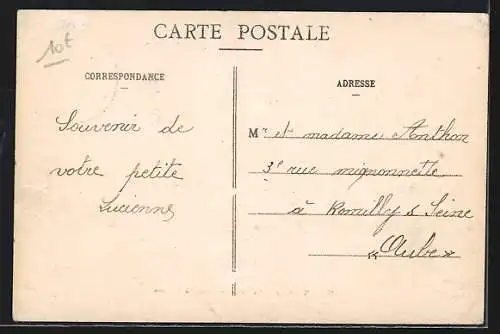 10t
CARTE POSTALE
CORRESPONDANCE
Souvenir de
votre petite
Lucienne
ADRESSE
Mr et madame Anthor
3e rue mignonnette
à Romilly s Seine
« Aube »